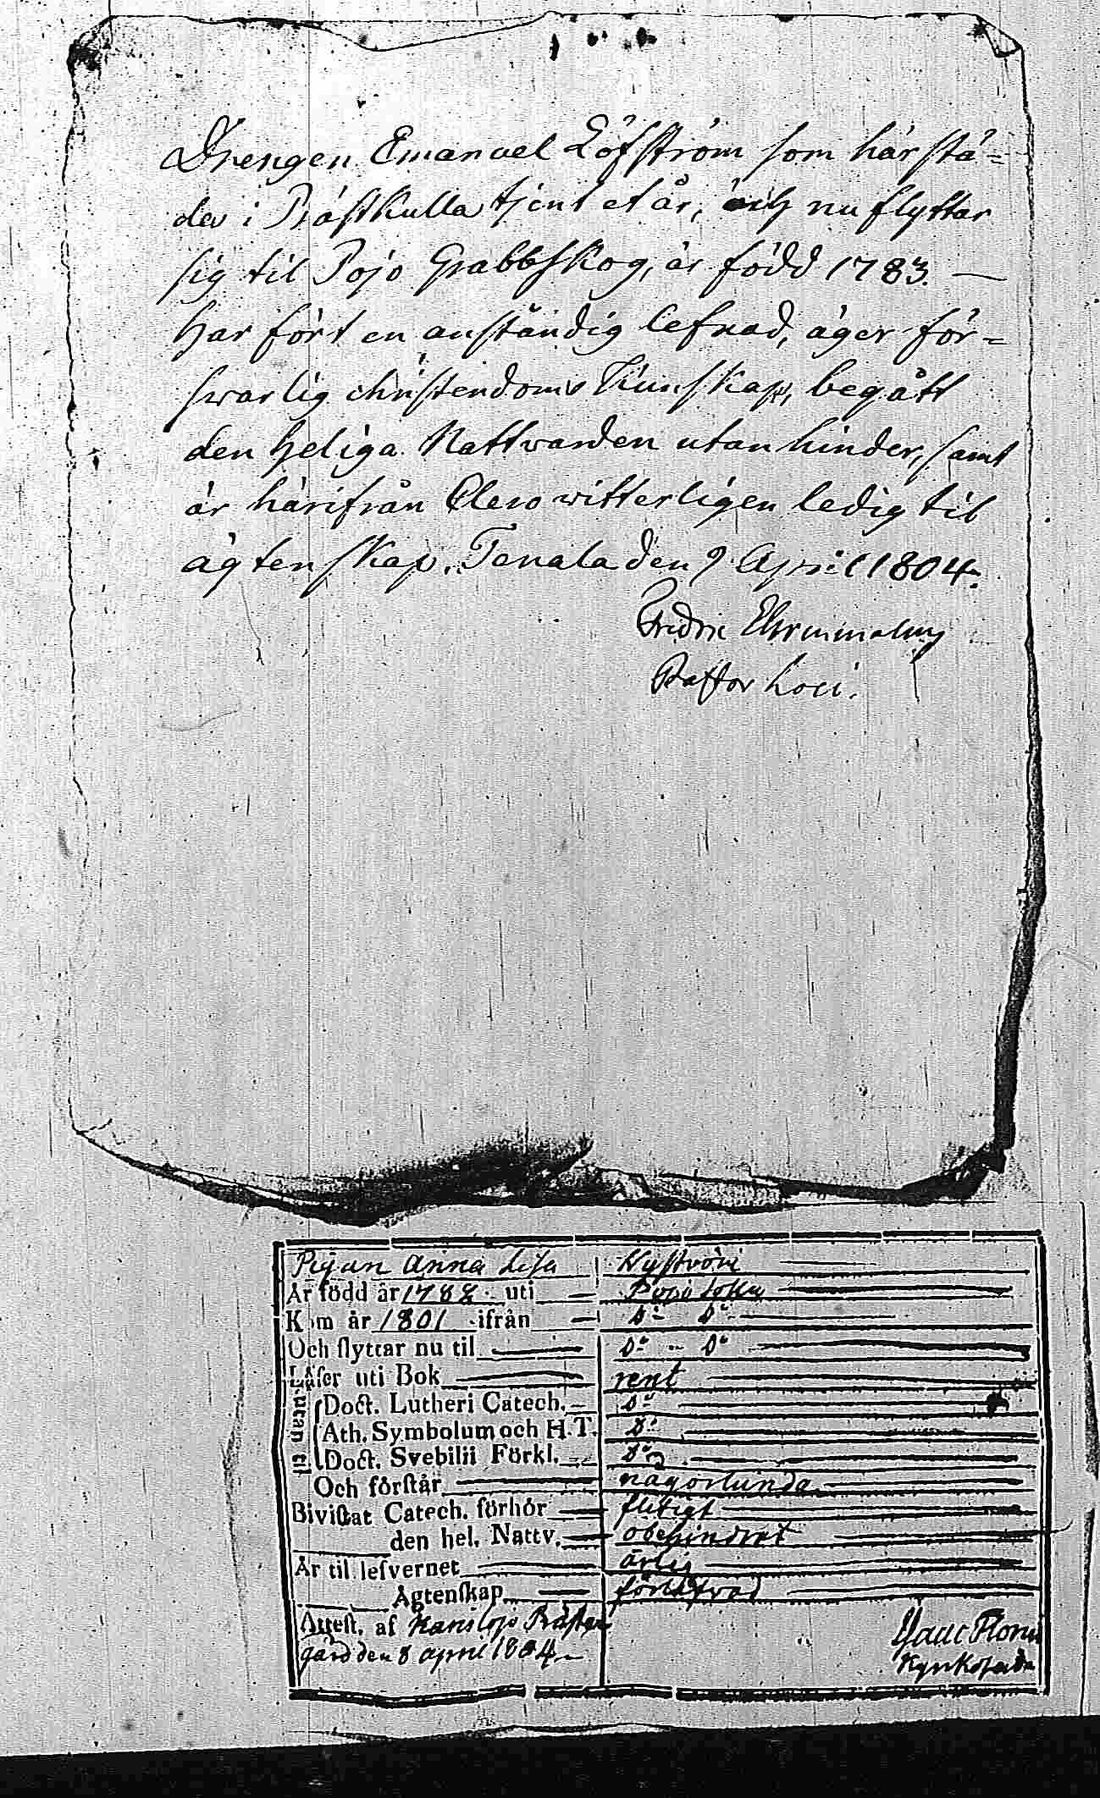 Drengen Emanuel Löfström som härstä=
des i Prästkulla tjent et år, och nu flyttar
sig til Pojo Grabbskog, är född 1783. —
har fört en anständig lefnad, äger för=
svarlig christendoms Kunskap, begått
den heliga Nattvarden utan hinder, samt
är härifrån Clero witterligen ledig til
ägtenskap. Tenala den 9 April 1804.
Fredric Ehrnmalm
Pastor Loci.
Pigan Anna Lisa Nyström
Är född år 1788 uti Pojo Sokn
Kom år 1801 ifrån Do Do
Och flyttar nu til Do Do
Läser uti Bok rent
utan til
Doct. Lutheri Catech. Do
Ath. Symbolum och H.T. Do
Doct. Svebilii Förkl. Do
Och förstår någorlunda
Bivistat Catech. förhör flitigt
den hel. Nattv. obehindrat
Är til lefvernet ärlig
Ägtenskap förlofvad
Attest. af Karislojo Prästen
gård den 8 april 1804
Isaac